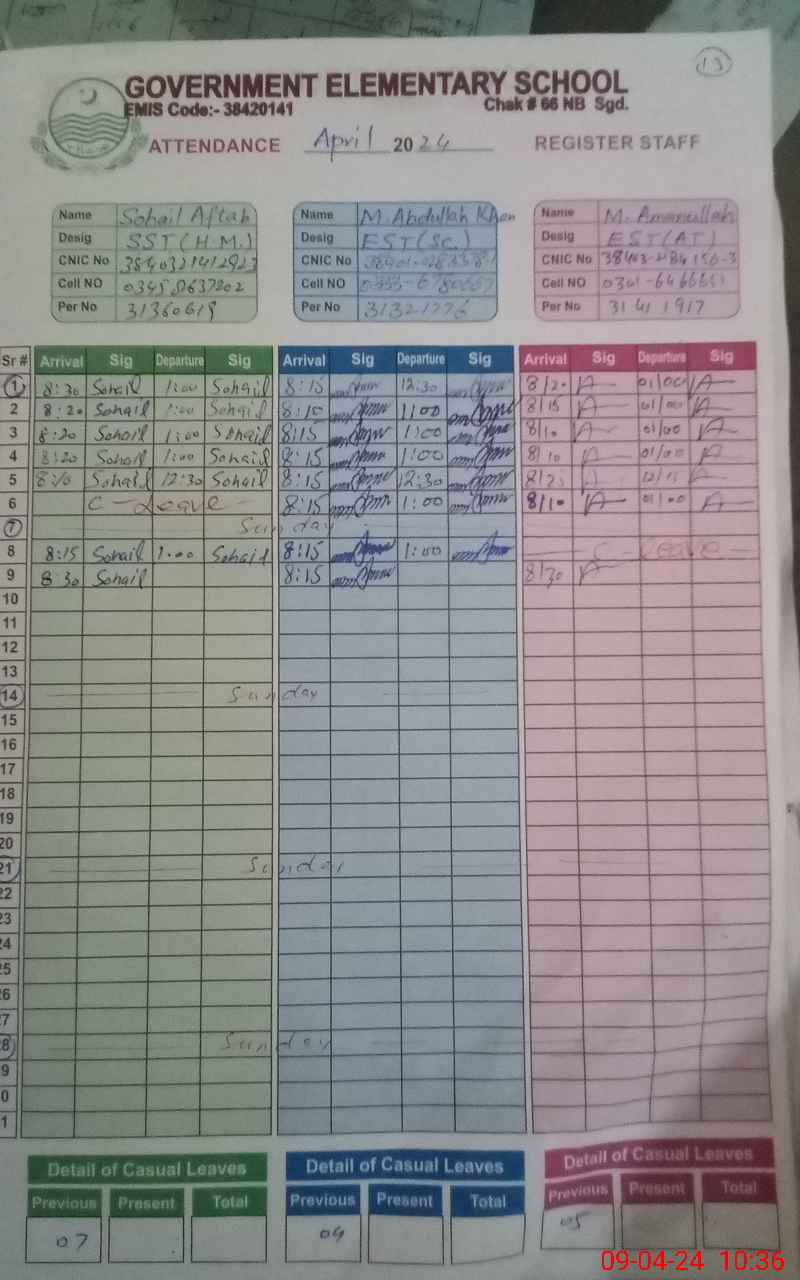 13
GOVERNMENT ELEMENTARY SCHOOL
EMIS Code:- 38420141 Chak # 66 NB Sgd.
ATTENDANCE April 2024 REGISTER STAFF
Name Sohail Aftab Name M. Abdullah Khan Name M. Amanullah
Desig SST (H.M.) Desig EST (Sc.) Desig EST (AT)
CNIC No 3840321412923 CNIC No CNIC No
Cell NO 03458637202 Cell NO Cell NO
Per No 31360619 Per No 31321776 Per No 31411917
Sr # Arrival Sig Departure Sig Arrival Sig Departure Sig Arrival Sig Departure Sig
1 8:30 Sohail 1:00 Sohail 8:15 12:30 8/20 A 01/00 A
2 8:20 Sohail 1:00 Sohail 8:15 1:00 8/15 A 01/00 A
3 8:20 Sohail 1:00 Sohail 8:15 1:00 8/10 A 01/00 A
4 8:20 Sohail 1:00 Sohail 8:15 1:00 8/10 A 01/00 A
5 8:10 Sohail 12:30 Sohail 8:15 12:30 A A
6 C-Leave 8:15 1:00 8/10 A 01/00 A
7 Sunday
8 8:15 Sohail 1:00 Sohail 8:15 1:00 C-leave
9 8:30 Sohail 8:15 8/30 A
10
11
12
13
14 Sunday
15
16
17
18
19
20
21 Sunday
22
23
24
25
26
27
28 Sunday
9
0
1
Detail of Casual Leaves Detail of Casual Leaves Detail of Casual Leaves
Previous Present Total Previous Present Total Previous Present Total
07 04 05
09-04-24 10:36